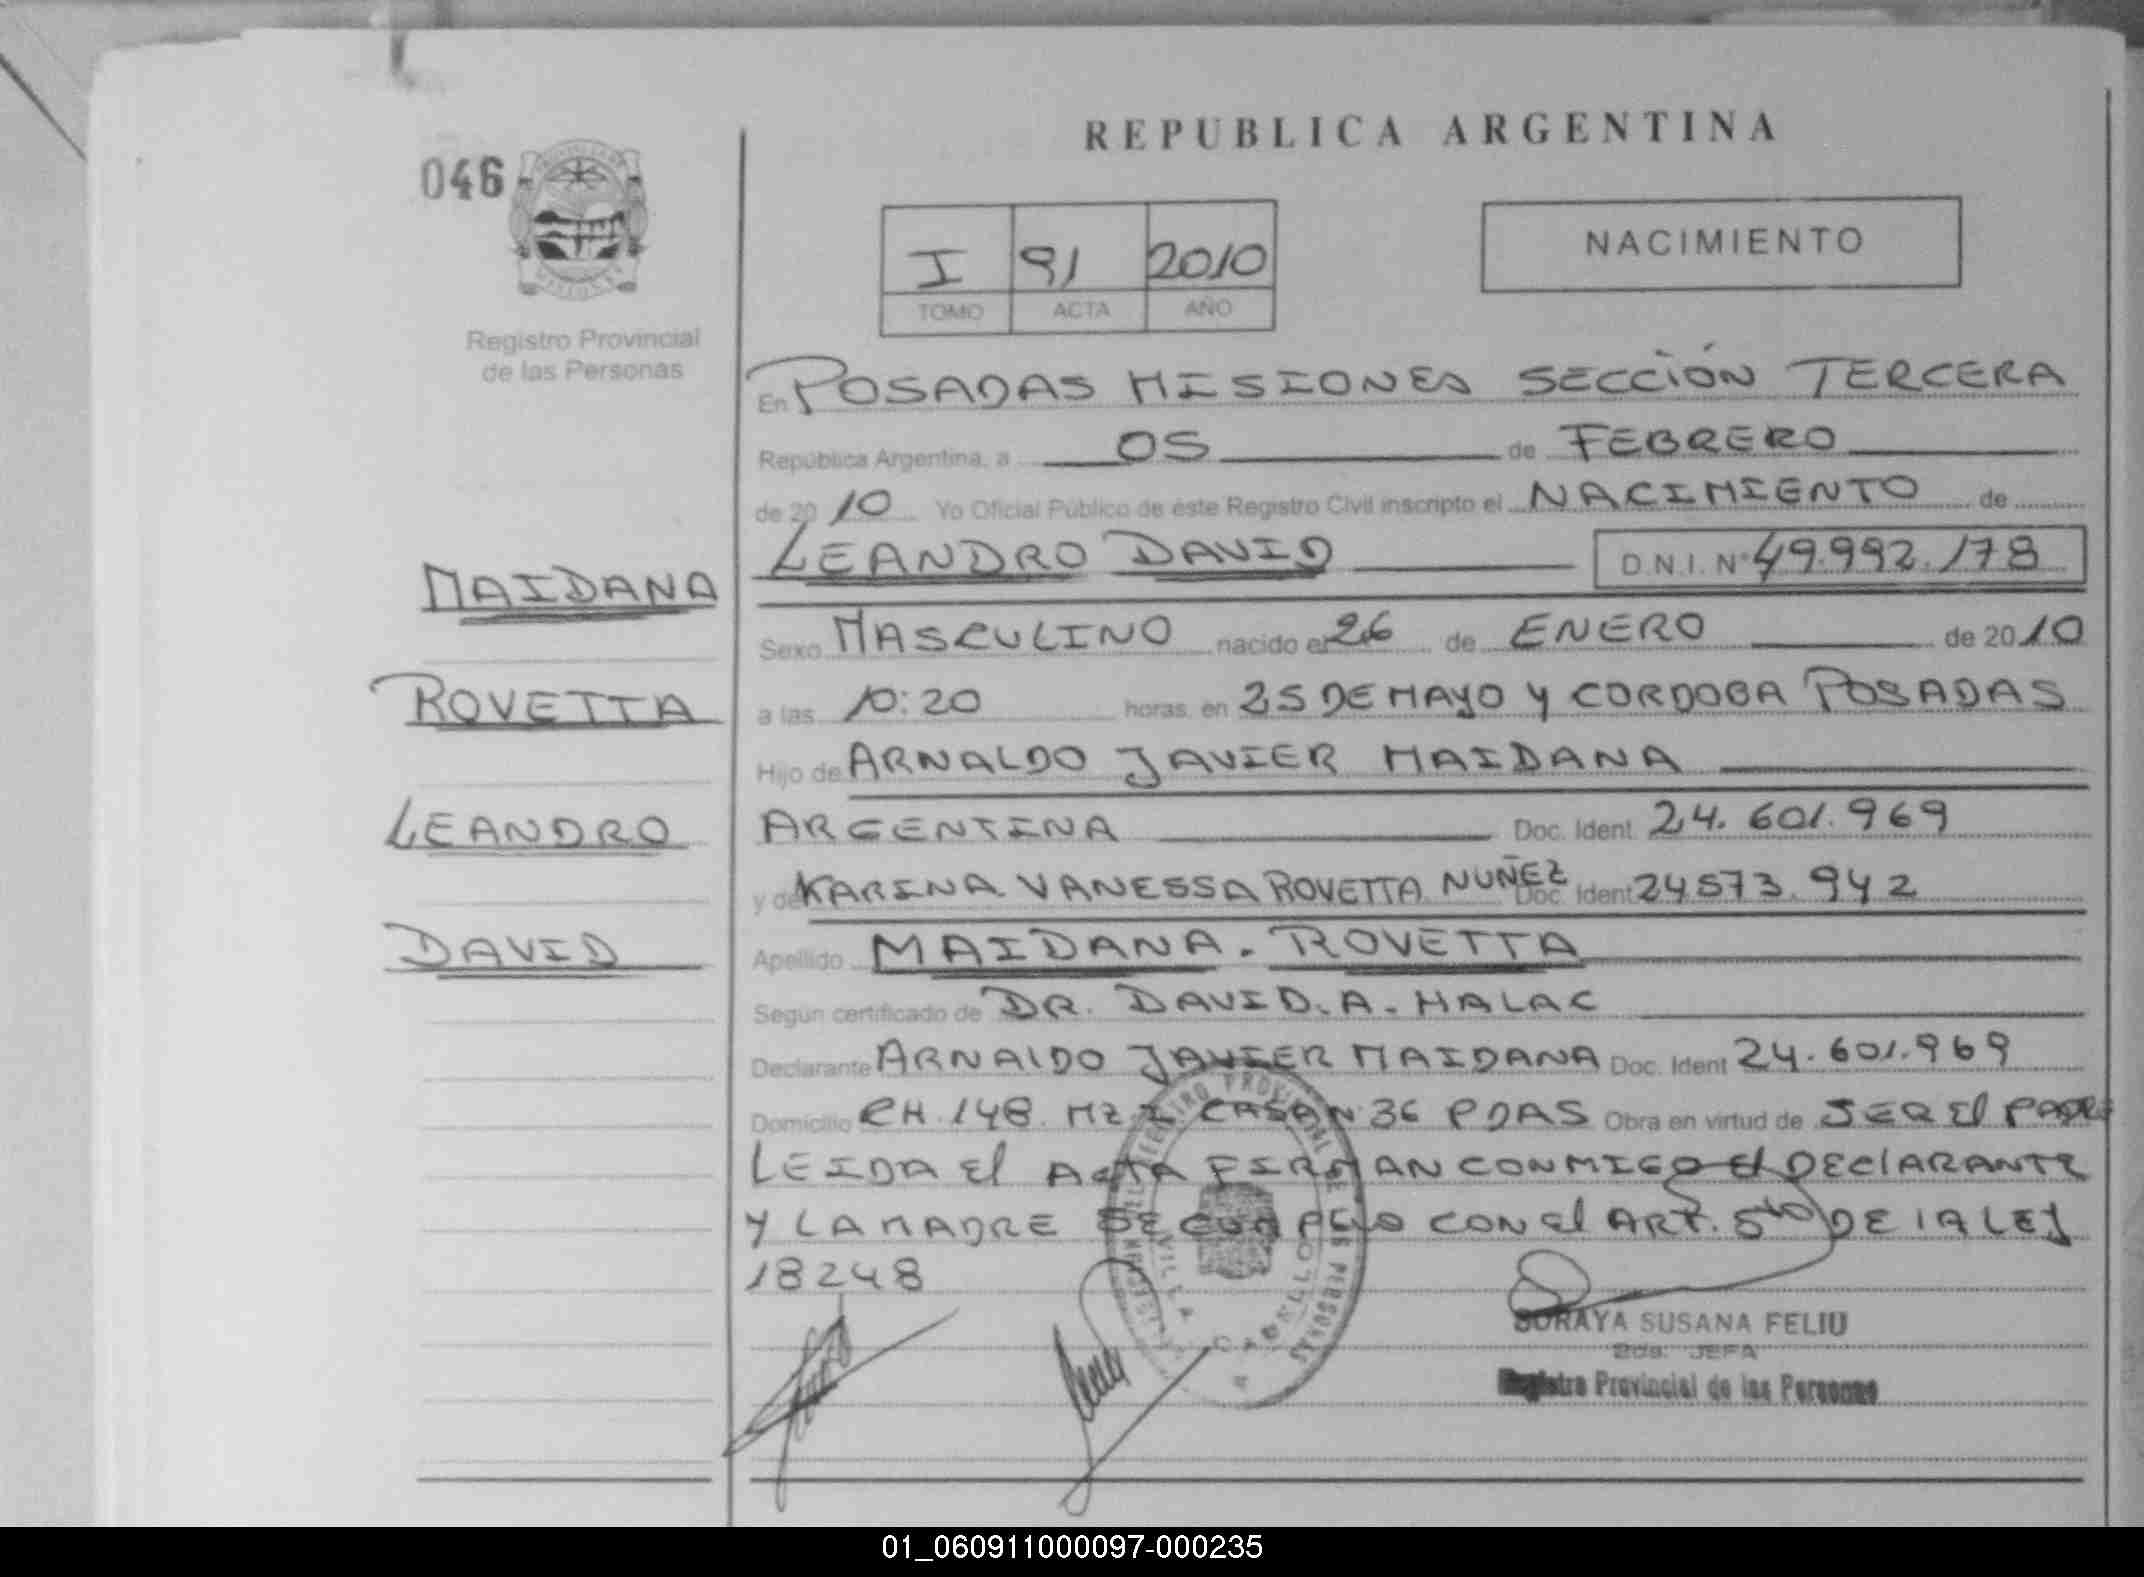 REPUBLICA ARGENTINA
046
I 91 2010
TOMO ACTA AÑO
NACIMIENTO
Registro Provincial
de las Personas
En POSADAS MISIONES SECCIÓN TERCERA
República Argentina, a 05 de FEBRERO
de 2010 Yo Oficial Público de éste Registro Civil inscripto el NACIMIENTO de
LEANDRO DAVID D.N.I. Nº 49.992.178
MAIDANA
Sexo MASCULINO nacido el 26 de ENERO de 2010
ROVETTA
a las 10:20 horas, en 25 DE MAYO Y CORDOBA POSADAS
Hijo de ARNALDO JAVIER MAIDANA
LEANDRO
ARGENTINA Doc. Ident 24.601.969
y de KARINA VANESSA ROVETTA NUÑEZ Doc. Ident 24573.942
DAVID
Apellido MAIDANA. ROVETTA
Según certificado de DR. DAVID.A.MALAC
Declarante ARNALDO JAVIER MAIDANA Doc. Ident 24.601.969
Domicilio CH.148. MZ CASA N 36 PDAS Obra en virtud de SER El PADRE
LEIDA El ACTA FIRMAN CONMIGO El DEClARANTE
Y LA MADRE DE CON EL ART. 5to DE lA LEY
18248
REGISTRO PROVINCIAL DE LAS PERSONAS
VILLA
SORAYA SUSANA FELIU
2da. JEFA
Registro Provincial de las Personas
01_060911000097-000235